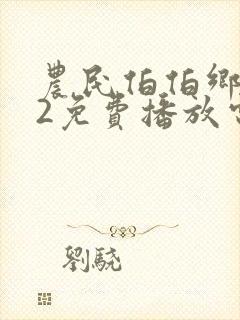 農民伯伯鄉
2免費播放
劉驍